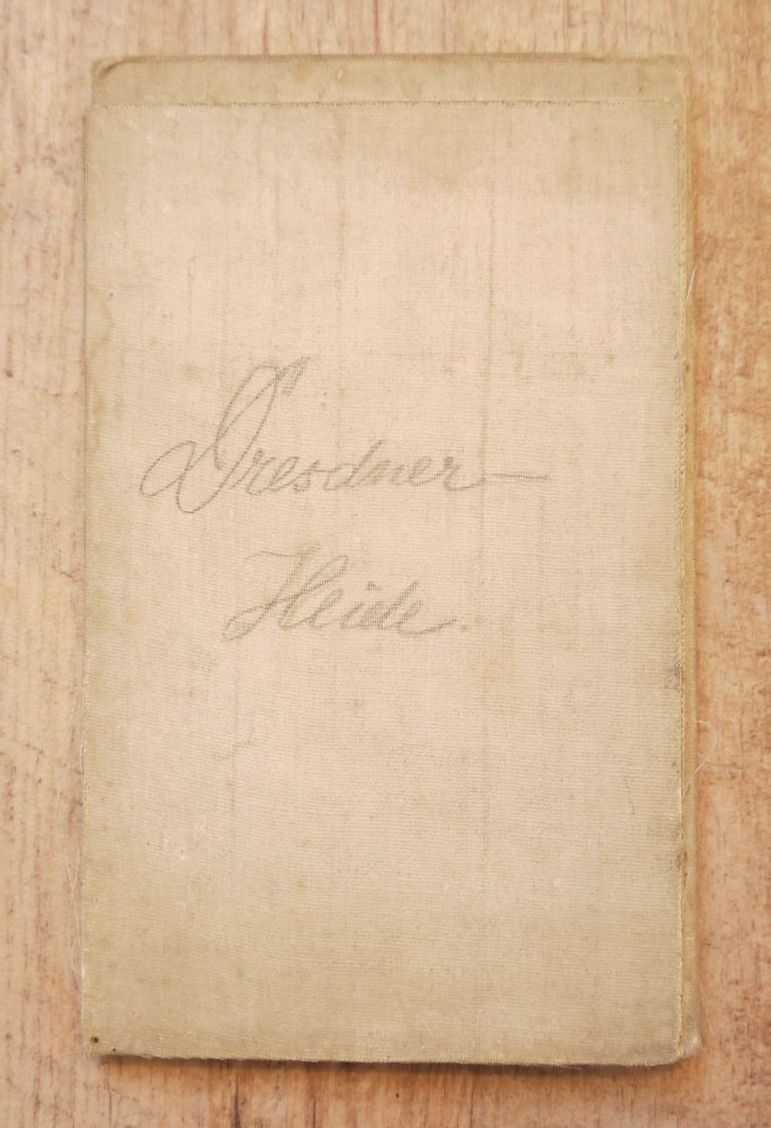 Dresdner-
Heide.